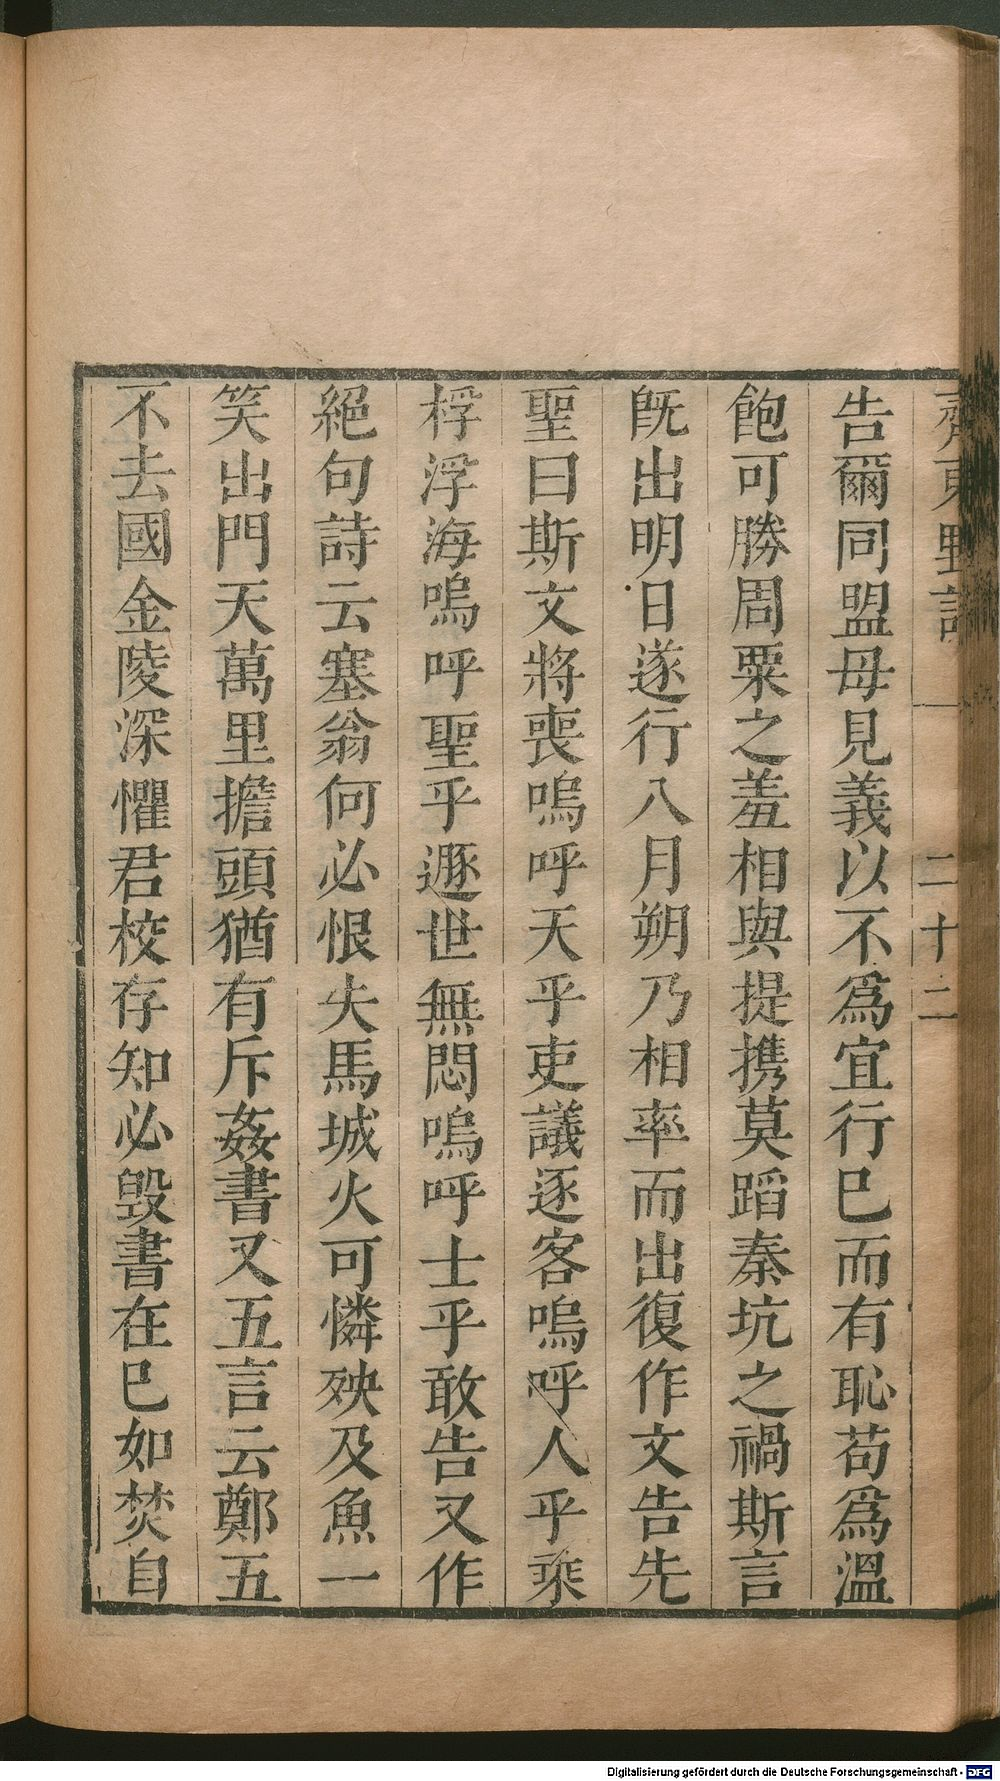 齊東野語
二十二
告爾同盟毋見義以不爲宜行巳而有恥苟爲溫
飽可勝周粟之羞相與提携莫蹈秦坑之禍斯言
旣出明日遂行八月朔乃相率而出復作文告先
聖曰斯文將喪嗚呼天乎吏議逐客嗚呼人乎乘
桴浮海嗚呼聖乎遯世無悶嗚呼士乎敢告又作
絕句詩云塞翁何必恨失馬城火可憐殃及魚一
笑出門天萬里擔頭猶有斥姦書又五言云鄭五
不去國金陵深懼君校存知必毁書在巳如焚自
Digitalisierung gefördert durch die Deutsche Forschungsgemeinschaft - DFG